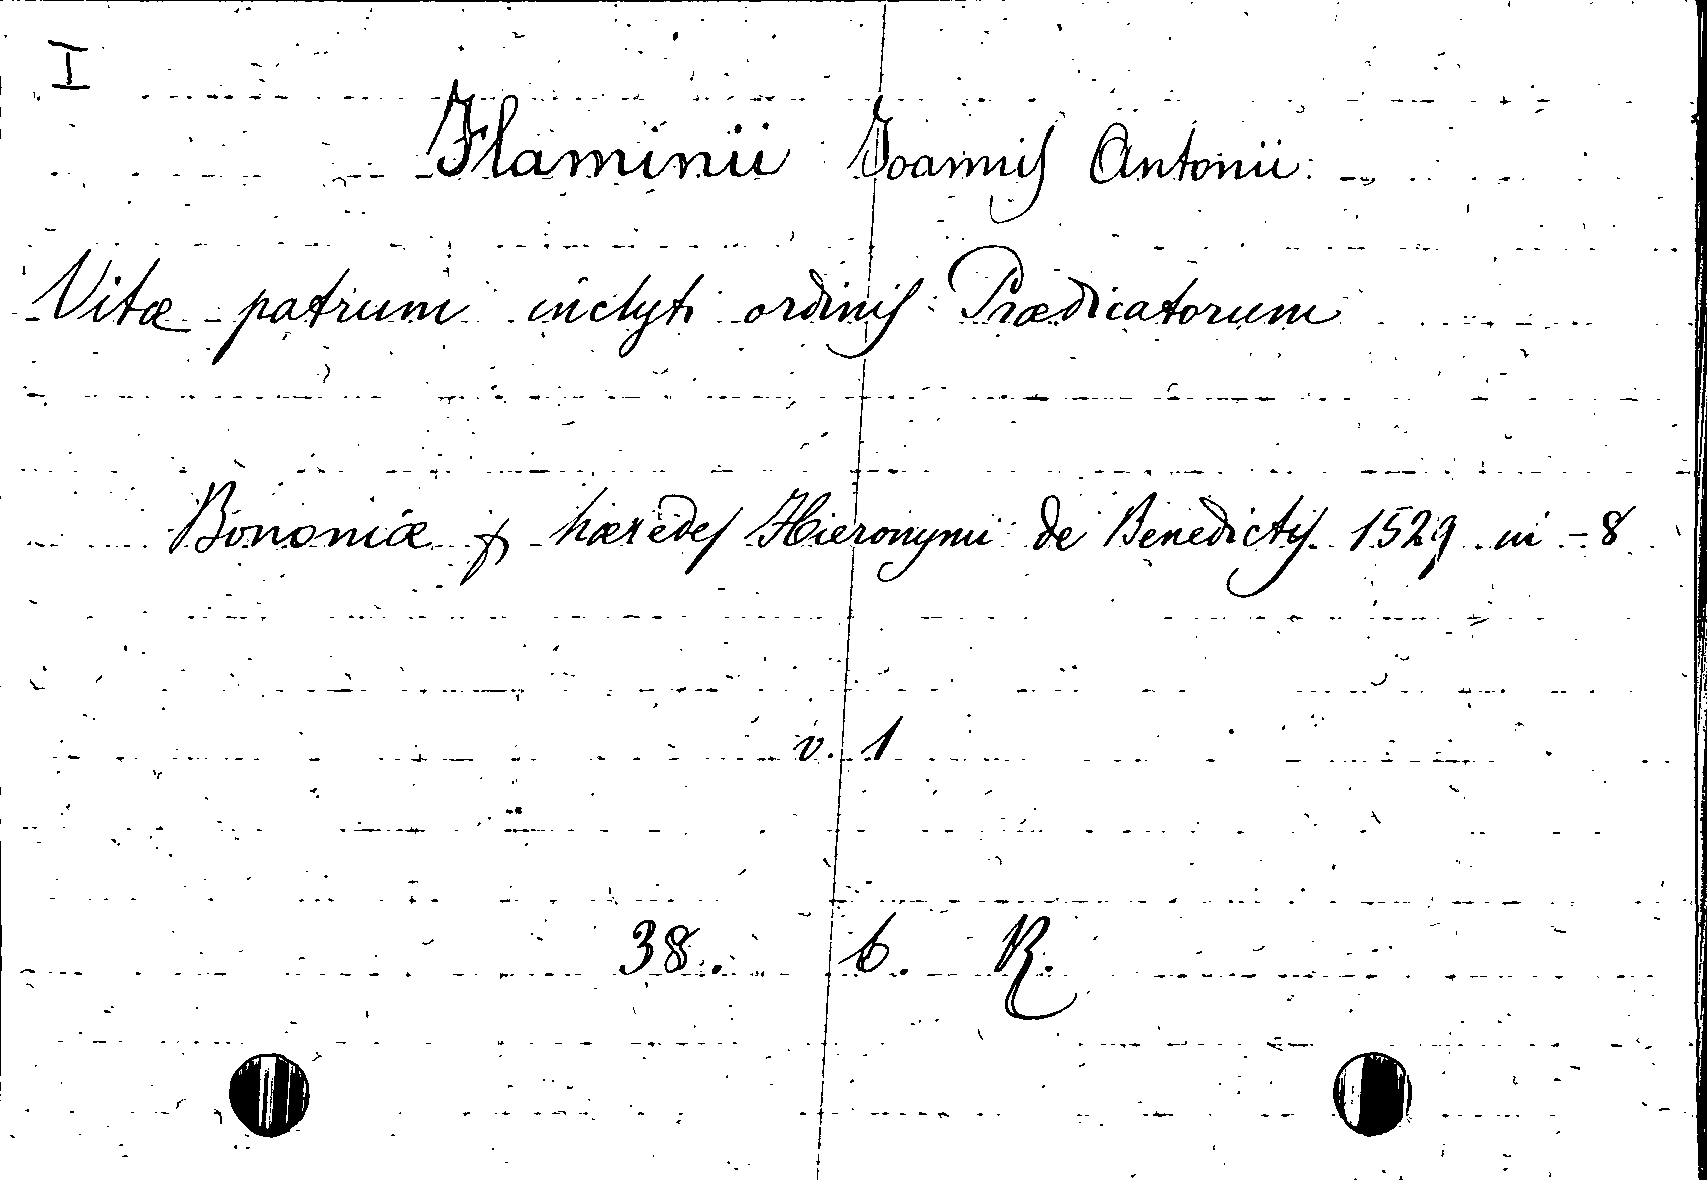 I
Flaminii Joannis Antonii
Vitæ patrum inclyti ordinis Prædicatorum
Bononiæ hæredes Hieronymi de Benedictis 1529 in-8
v. 1
38. 6. R.